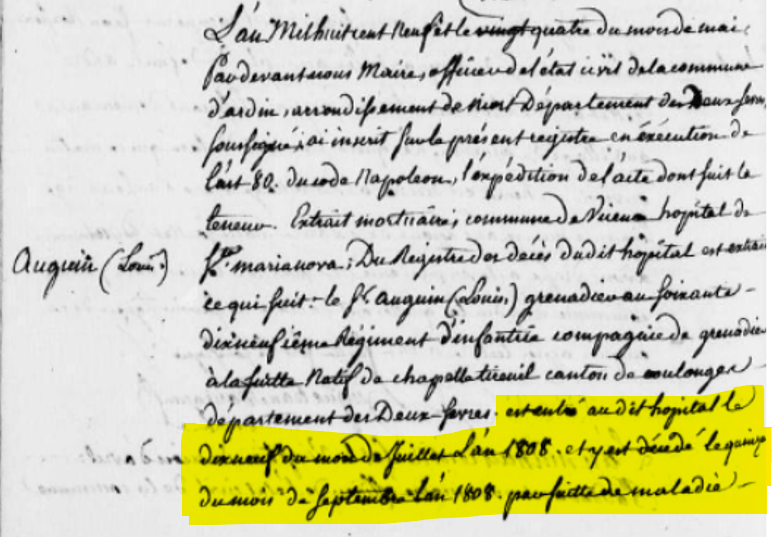 L'an Mil huit cent Neuf et le vingt quatre du mois de mai
Pardevant nous Maire, officier de l'état civil de la commune
d'ardin, arrondissement de Niort Département des Deux Sevres
soussigné, ai inscrit sur le présent registre en exécution de
l'art 80. du code Napoleon, l'expédition de l'acte dont suit la
teneur. Extrait mortuaire, commune de hopital de
Auguin (Louis.) Ste maria nova; Du Registre des décès du dit hopital est extrait
ce qui suit: le Sr. auguin (Louis.) grenadier au soixante
dixneufième Régiment d'infantrie compagnie de grenadier
à la suitte Natif de chapelle tireuil canton de coulonges
département des Deux-Sevres. est entré au dit hopital le
dixneuf du mois de Juillet L'an 1808. et y est décédé le quinze
du mois de Septembre l'an 1808. par suitte de maladie